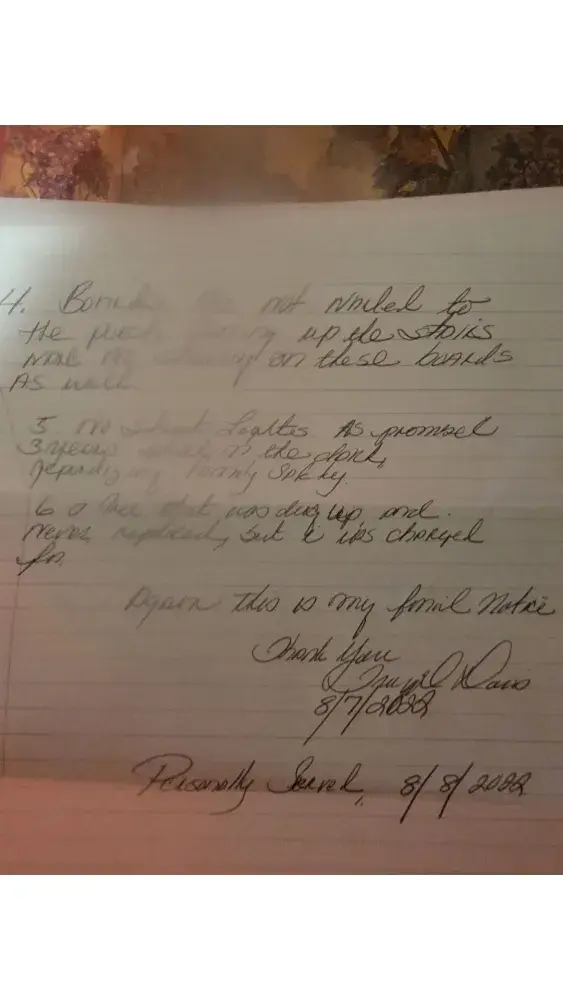 4. Boards are not nailed to
the porch coming up the stairs
on these boards
As well
5. no Street Lights As promised
3 years in the dark,
my Family Safety.
6 a tree that was dug up and
never replaced, but I was charged
for.
Again this is my final Notice
Thank You
Davis
8/7/2022
Personally Served, 8/8/2022